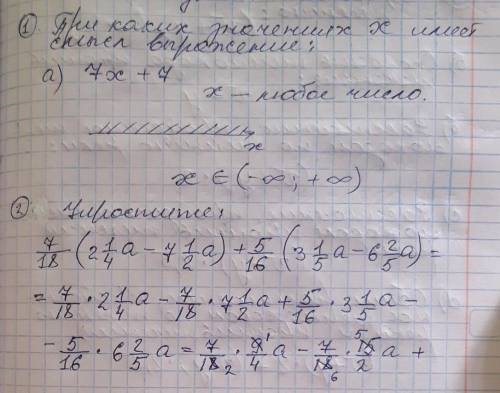 ① При каких значениях x имеет
смысл выражение:
а) 7x + 7
x – любое число.
x
x ∈ (-∞; +∞)
② Упростите:
7/18 (2 1/4 a - 7 1/2 a) + 5/16 (3 1/5 a - 6 2/5 a) =
= 7/18 · 2 1/4 a - 7/18 · 7 1/2 a + 5/16 · 3 1/5 a -
- 5/16 · 6 2/5 a = 7/18 2 · 9 1/4 a - 7/18 6 · 5 15/2 a +